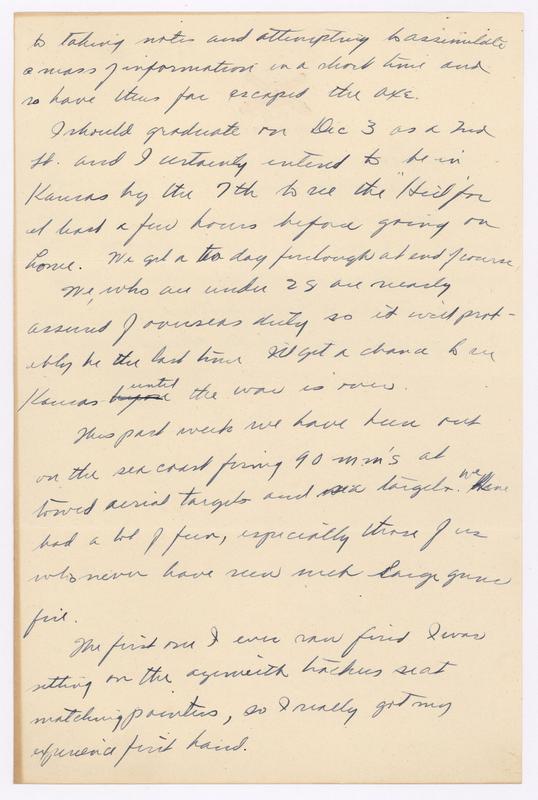 to taking notes and attempting to assimilate
a mass of information in a short time and
so have thus far escaped the axe.
I should graduate on Dec 3 as a 2nd
Lt. and I certainly intend to be in
Kansas by the 7th to see the "Hill" for
at least a few hours before going on
home. We get a ten day furlough at end of course.
We, who are under 28 are nearly
assured of overseas duty so it will prob-
ably be the last time I'll get a chance to see
Kansas until the war is over.
This past week we have been out
on the sea coast firing 90 m.m's at
towed aerial targets and sea targets. We have
had a lot of fun, especially those of us
who never have seen such large guns
fire.
The first one I ever saw fired I was
sitting on the azimuth trackers seat
matching pointers, so I really got my
experience first hand.